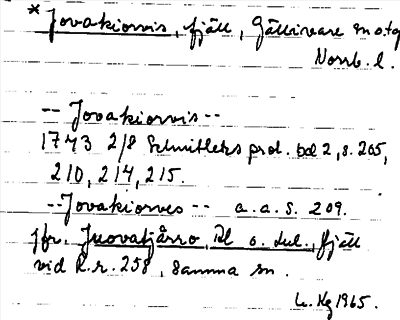 * Jovakiorvis, fjäll, Gällivare sn o. tg
Norrb. l.
-- Jovakiorvis --
1743 2/8 Schnitlers prot. bd 2, s. 205,
210, 214, 215.
-- Jovakiorves -- a. a. s. 209.
jfr. Juovatjårro, Dl o. dul., fjäll
vid R.r. 258, samma sn.
L. Kg 1965.